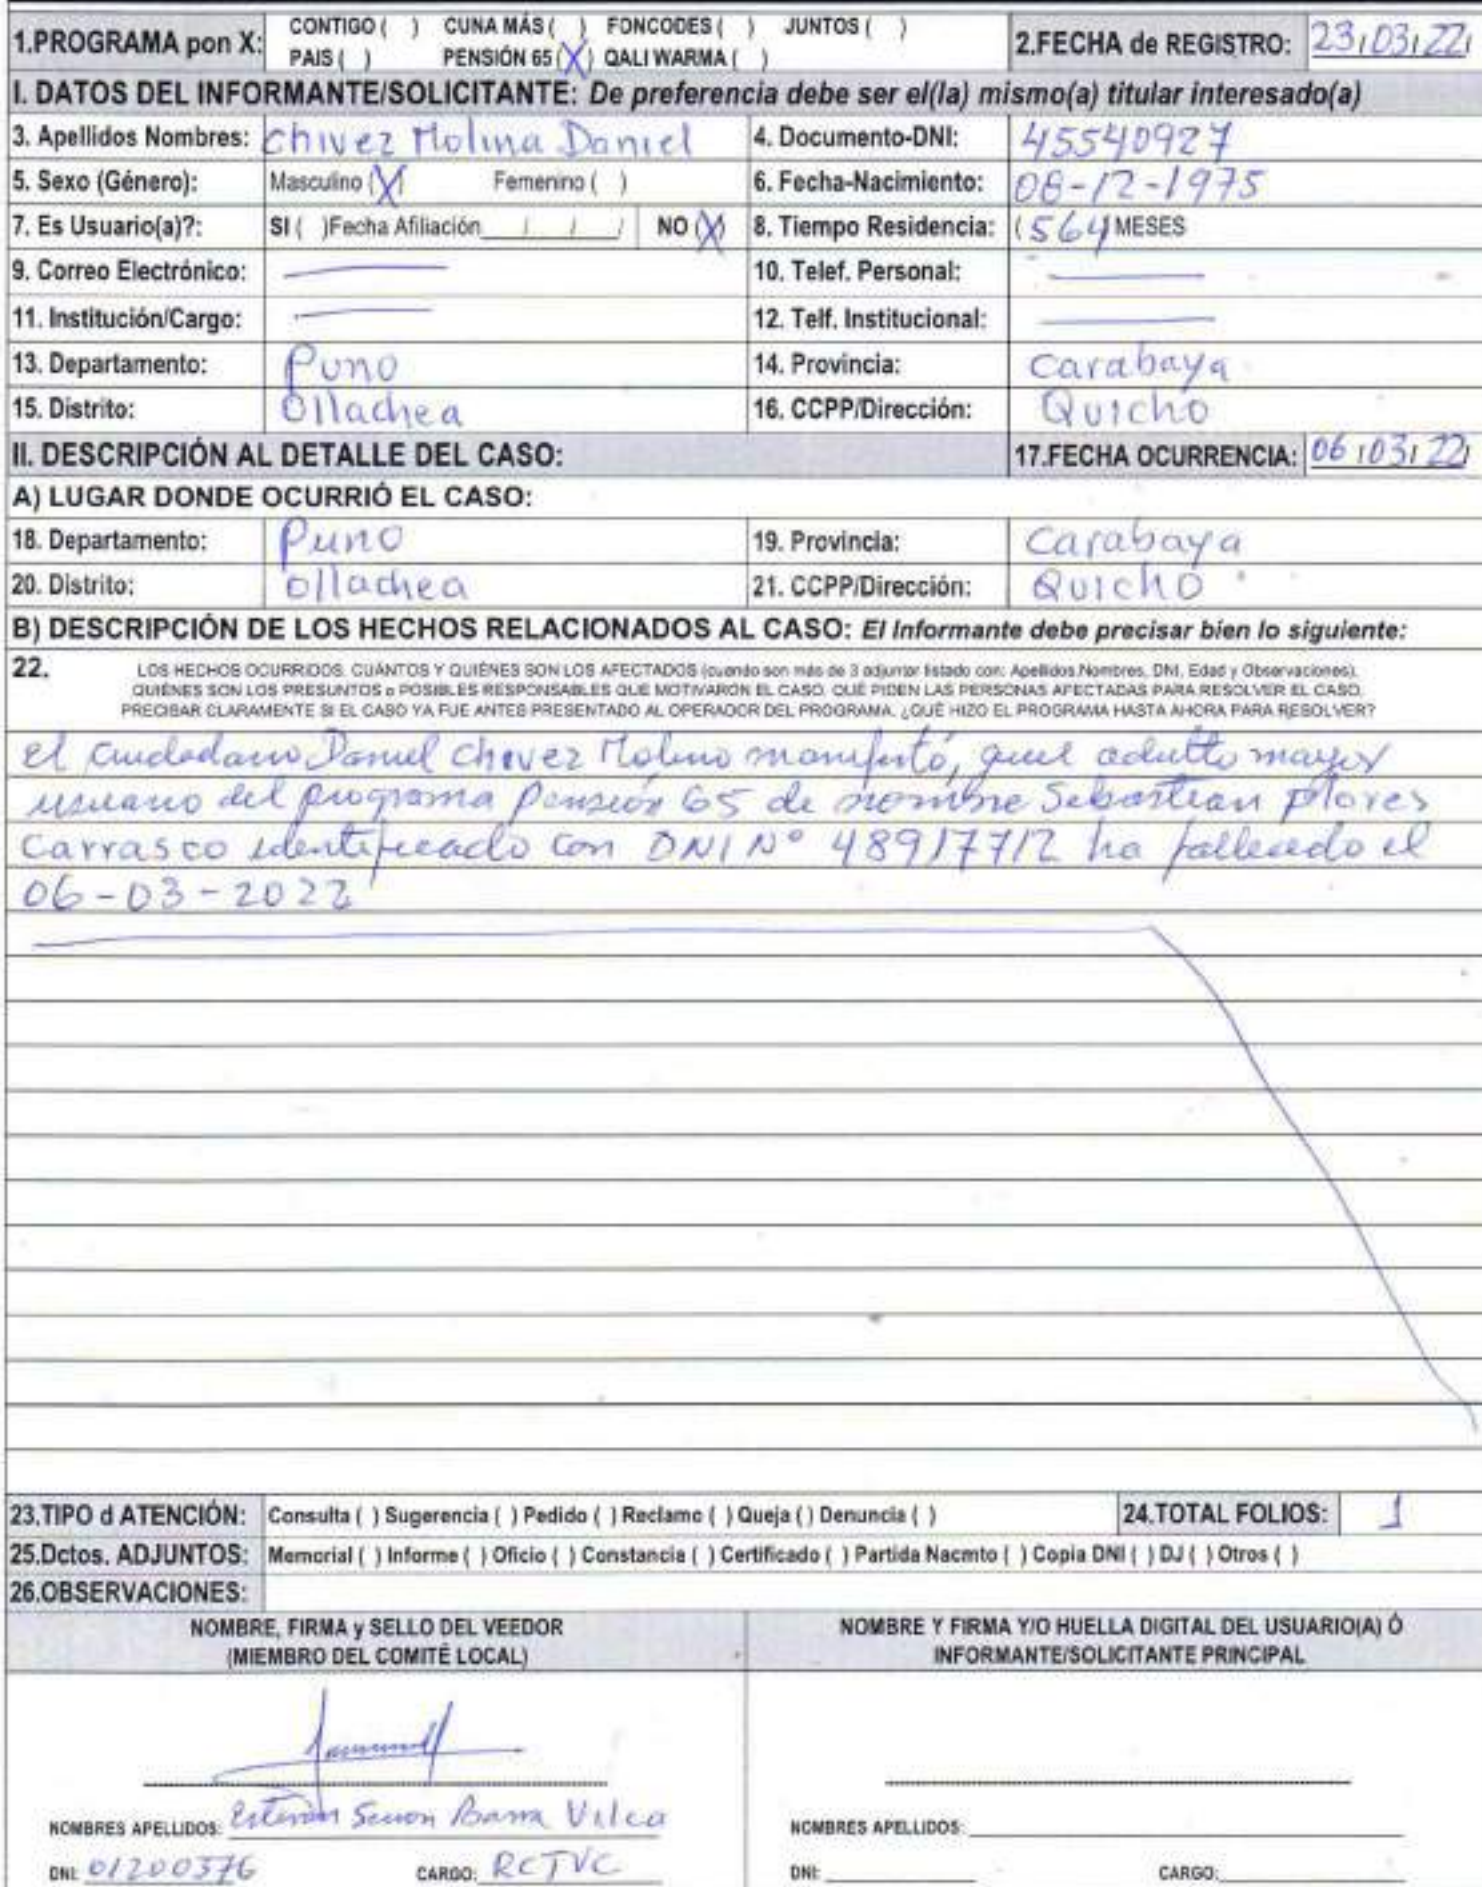 1.PROGRAMA pon X: CONTIGO ( ) CUNA MÁS ( ) FONCODES ( ) JUNTOS ( )
PAIS ( ) PENSIÓN 65 (X) QALI WARMA ( )
2.FECHA de REGISTRO: 23/03/22/
I. DATOS DEL INFORMANTE/SOLICITANTE: De preferencia debe ser el(la) mismo(a) titular interesado(a)
3. Apellidos Nombres: Chivez Molina Daniel 4. Documento-DNI: 45540927
5. Sexo (Género): Masculino (X) Femenino ( ) 6. Fecha-Nacimiento: 08-12-1975
7. Es Usuario(a)?: SI ( )Fecha Afiliación / / / NO (X) 8. Tiempo Residencia: (564) MESES
9. Correo Electrónico: 10. Telef. Personal:
11. Institución/Cargo: 12. Telf. Institucional:
13. Departamento: Puno 14. Provincia: Carabaya
15. Distrito: Ollachea 16. CCPP/Dirección: Quicho
II. DESCRIPCIÓN AL DETALLE DEL CASO: 17.FECHA OCURRENCIA: 06/03/22/
A) LUGAR DONDE OCURRIÓ EL CASO:
18. Departamento: Puno 19. Provincia: Carabaya
20. Distrito: Ollachea 21. CCPP/Dirección: Quicho
B) DESCRIPCIÓN DE LOS HECHOS RELACIONADOS AL CASO: El Informante debe precisar bien lo siguiente:
22. LOS HECHOS OCURRIDOS. CUÁNTOS Y QUIÉNES SON LOS AFECTADOS (cuando son más de 3 adjuntar listado con: Apellidos Nombres, DNI, Edad y Observaciones).
QUIÉNES SON LOS PRESUNTOS o POSIBLES RESPONSABLES QUE MOTIVARON EL CASO. QUÉ PIDEN LAS PERSONAS AFECTADAS PARA RESOLVER EL CASO.
PRECISAR CLARAMENTE SI EL CASO YA FUE ANTES PRESENTADO AL OPERADOR DEL PROGRAMA. ¿QUÉ HIZO EL PROGRAMA HASTA AHORA PARA RESOLVER?
el ciudadano Daniel Chivez Molina manifestó, que el adulto mayor
usuario del programa Pensión 65 de nombre Sebastian Flores
Carrasco identificado con DNI N° 48917712 ha fallecido el
06-03-2022
23.TIPO d ATENCIÓN: Consulta ( ) Sugerencia ( ) Pedido ( ) Reclamo ( ) Queja ( ) Denuncia ( ) 24.TOTAL FOLIOS: 1
25.Dctos. ADJUNTOS: Memorial ( ) Informe ( ) Oficio ( ) Constancia ( ) Certificado ( ) Partida Nacmto ( ) Copia DNI ( ) DJ ( ) Otros ( )
26.OBSERVACIONES:
NOMBRE, FIRMA y SELLO DEL VEEDOR
(MIEMBRO DEL COMITÉ LOCAL)
NOMBRE Y FIRMA Y/O HUELLA DIGITAL DEL USUARIO(A) Ó
INFORMANTE/SOLICITANTE PRINCIPAL
NOMBRES APELLIDOS: Vilca
DNI: 01200376 CARGO: RCTVC
NOMBRES APELLIDOS:
DNI: CARGO: